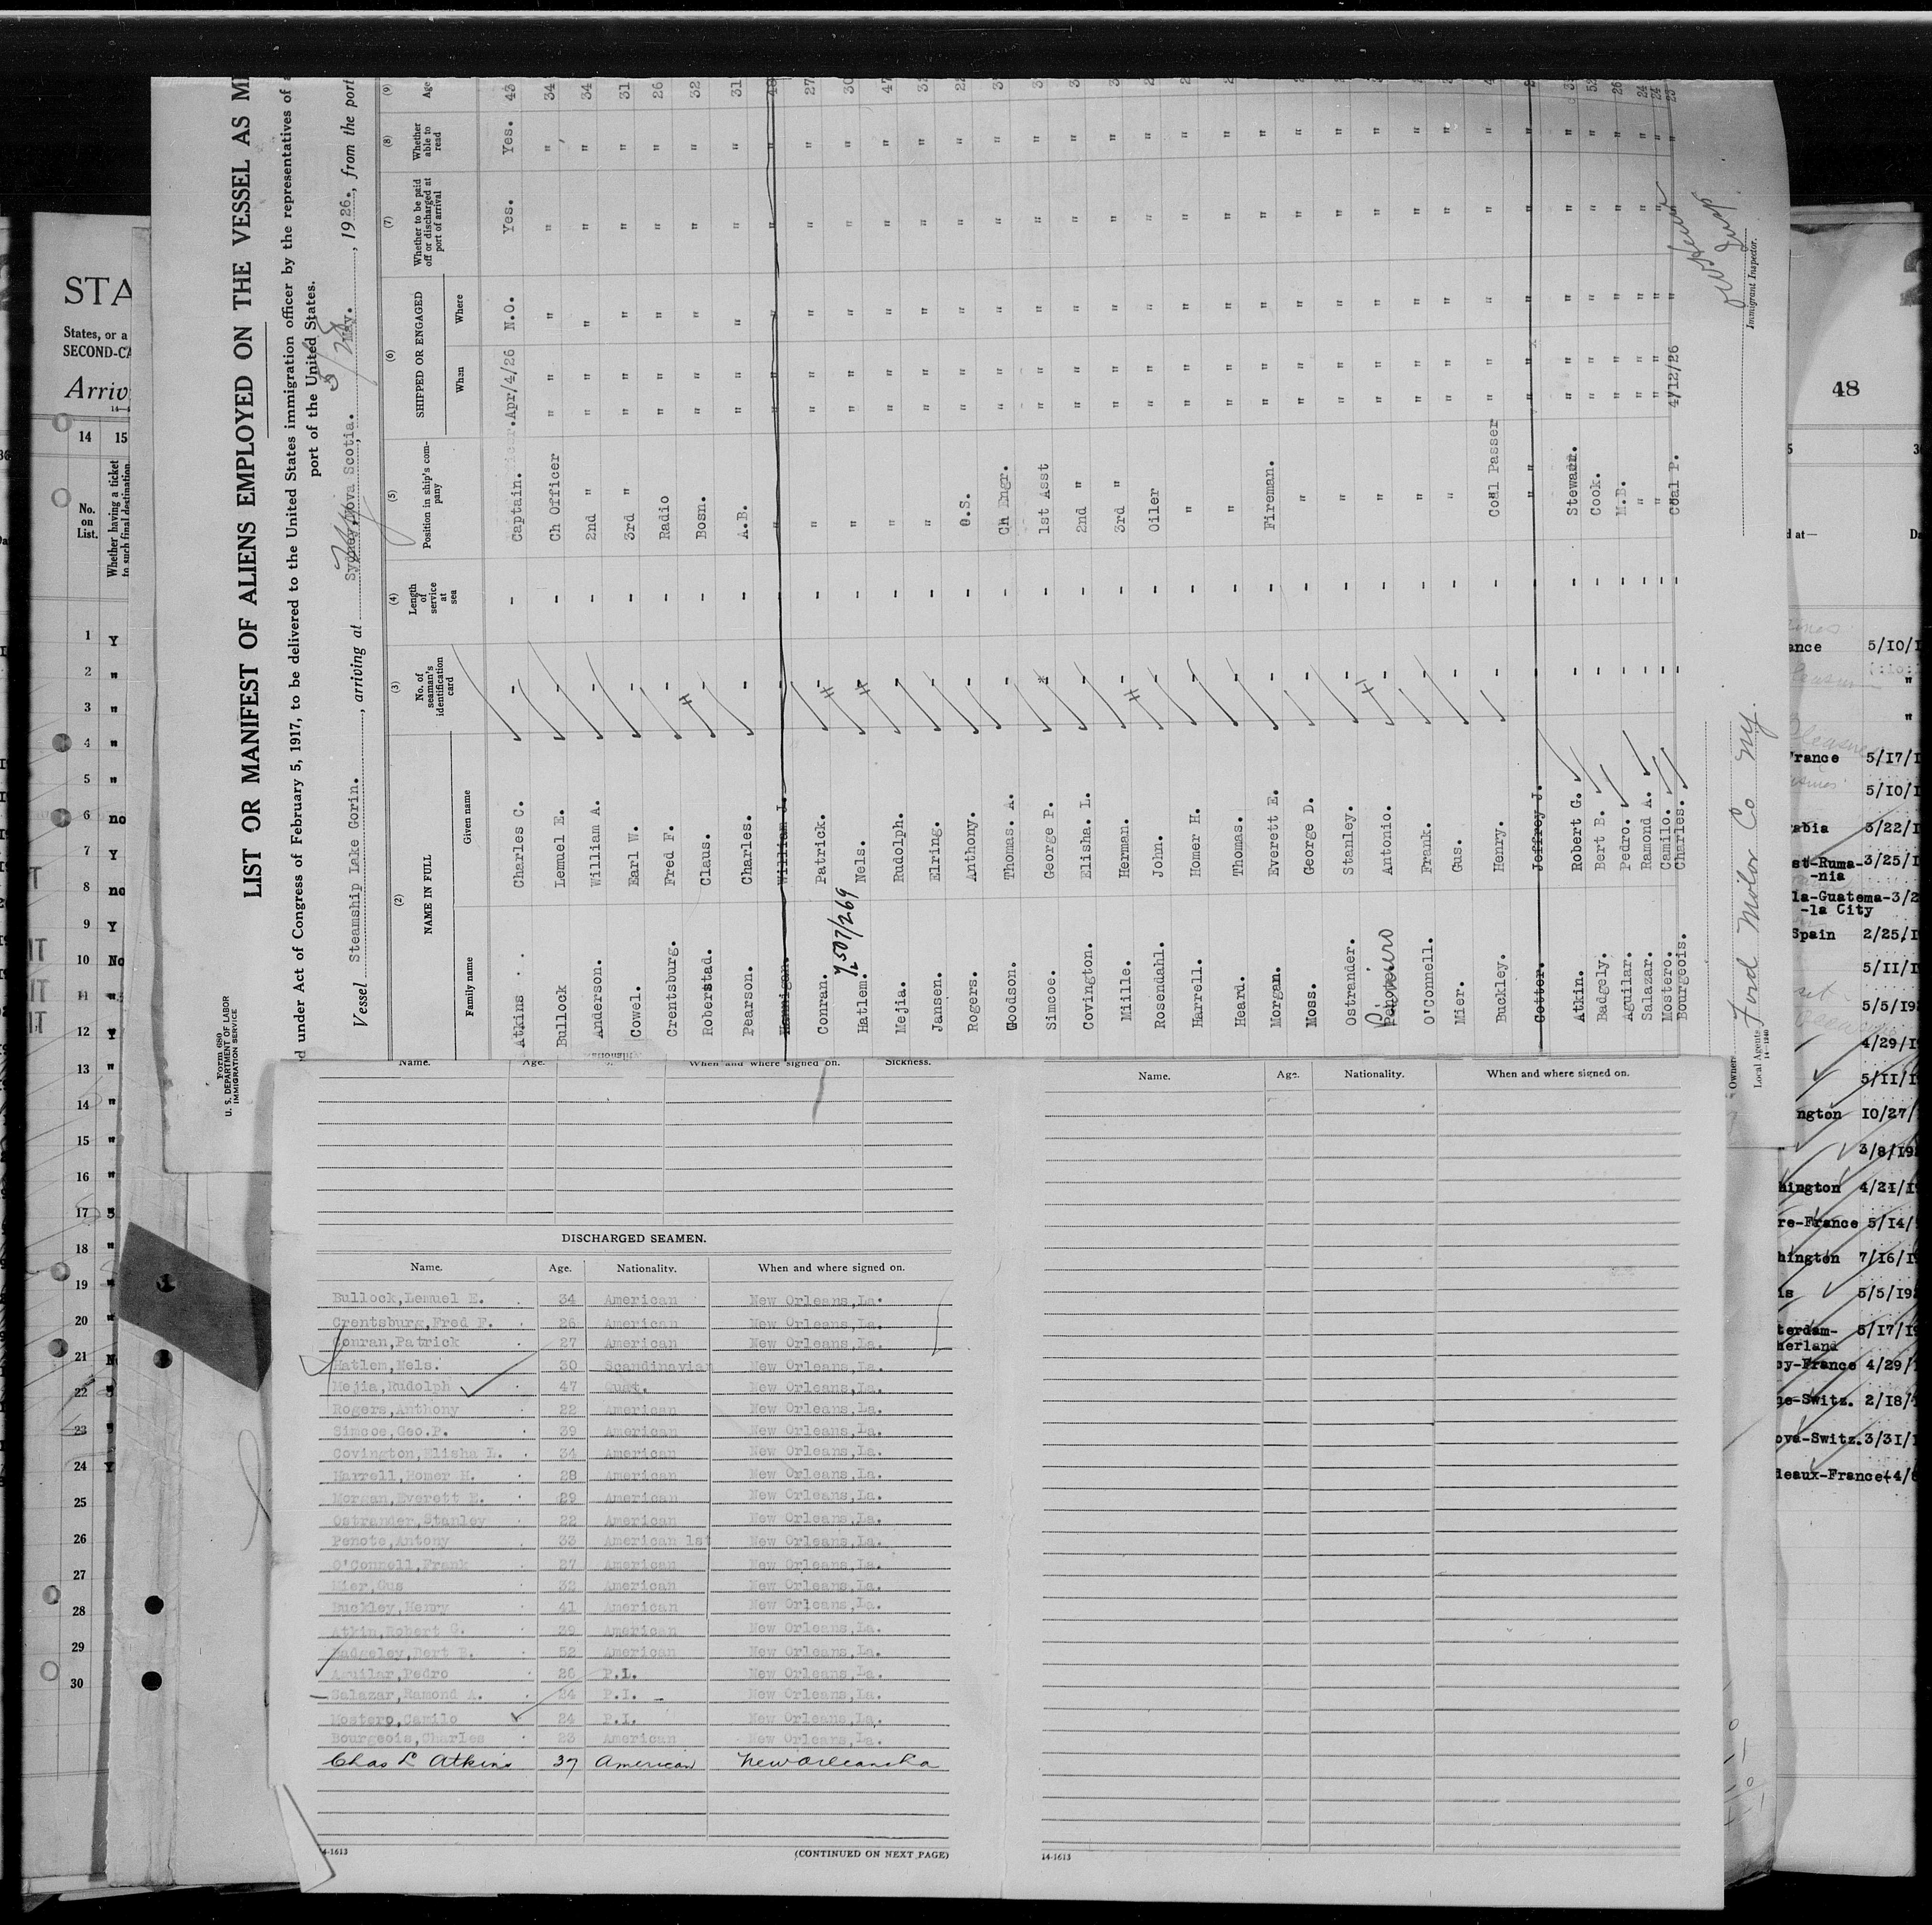 LIST OR MANIFEST OF ALIENS EMPLOYED ON THE VESSEL AS
under Act of Congress of February 5, 1917, to be delivered to the United States immigration officer by the representatives of
port of the United States.
Vessel Steamship Lake Gorin. , arriving at Sydney, Nova Scotia. , 1926. , from the port
Form 680
U. S. DEPARTMENT OF LABOR
IMMIGRATION SERVICE
(2) (3) (4) (5) (6) (7) (8) (9)
NAME IN FULL
Family name Given name
No. of seaman's identification card
Length of service at sea
Position in ship's company
SHIPPED OR ENGAGED
When Where
Whether to be paid off or discharged at port of arrival
Whether able to read
Age
Atkins . . Charles C. - Captain. Apr/4/26 N.O. Yes. Yes. 43
Bullock Lemuel E. - Ch Officer " " " " " 34
Anderson. William A. - 2nd " " " " " " 34
Cowel. Earl W. - 3rd " " " " " " 31
Crentsburg. Fred F. - Radio " " " " " 26
Roberstad. Claus. - Bosn. " " " " " 32
Pearson. Charles. - A.B. " " " " " 31
William J. - " " " " " "
Conran. Patrick. - " " " " " " 27
Hatlem. Nels. - " " " " " " 30
Mejia. Rudolph. - " " " " " " 47
Jansen. Elring. - " " " " " "
Rogers. Anthony. - O.S. " " " " "
Goodson. Thomas. A. - Ch Engr. " " " " "
Simcoe. George P. - 1st Asst " " " " "
Covington. Elisha. L. - 2nd " " " " " "
Miille. Herman. - 3rd " " " " " "
Rosendahl. John. - Oiler " " " " "
Harrell. Homer H. - " " " " " "
Heard. Thomas. - " " " " " "
Morgan. Everett E. - Fireman. " " " " "
Moss. George D. - " " " " " "
Ostrander. Stanley. - " " " " " "
Antonio. - " " " " " "
O'Connell. Frank. - " " " " " "
Mier. Gus. - " " " " " "
Buckley. Henry. - Coal Passer " " " " "
Cotter. Jeffrey J. - " " " " " "
Atkin. Robert G. - Steward. " " " " "
Badgely. Bert B. - Cook. " " " " " 52
Aguilar. Pedro. - M.B. " " " " " 26
Salazar. Ramond A. - " " " " " " 24
Mostero. Camilo. - " " " " " " 24
Bourgeois. Charles. - Coal P. 4/12/26 " " " 23
Immigrant Inspector.
Owners
Local Agents Ford Motor Co NY.
14-1240
Name. Age. When and where signed on. Sickness.
DISCHARGED SEAMEN.
Name. Age. Nationality. When and where signed on.
Bullock,Lemuel E. 34 American New Orleans,La.
Crentsburg,Fred F. 26 American New Orleans,La.
Conran,Patrick 27 American New Orleans,La.
Hatlem,Nels. 30 Scandinavian New Orleans,La.
Mejia,Rudolph 47 Guat. New Orleans,La.
Rogers,Anthony 22 American New Orleans,La.
Simcoe,Geo.P. 39 American New Orleans,La.
Covington,Elisha L. 34 American New Orleans,La.
Harrell,Homer H. 28 American New Orleans,La.
Morgan,Everett E. 29 American New Orleans,La.
Ostrander,Stanley 22 American New Orleans,La.
Penote,Antony 33 American 1st New Orleans,La.
O'Connell,Frank 27 American New Orleans,La.
Mier,Gus 32 American New Orleans,La.
Buckley,Henry 41 American New Orleans,La.
Atkin,Robert G. 39 American New Orleans,La.
Badgeley,Bert B. 52 American New Orleans,La.
Aguilar,Pedro 26 P.I. New Orleans,La.
Salazar,Ramond A. 24 P.I. New Orleans,La.
Mostero,Camilo 24 P.I. New Orleans,La.
Bourgeois,Charles 23 American New Orleans,La.
Chas L Atkins 37 American New Orleans La
4-1613
(CONTINUED ON NEXT PAGE)
Name. Age. Nationality. When and where signed on.
14-1613
STA
States, or a
SECOND-CA
Arriv
14 15
No. on List.
Whether having a ticket to such final destination
1 Y
2 "
3 "
4 "
5 "
6 no
7 Y
8 no
9 Y
10 No
11 "
12 Y
13 "
14 "
15 "
16 "
17
18 "
19 "
20 "
21
22
23 "
24 Y
25
26
27
28
29
30
48
ance 5/10/1
"
"
France 5/17/1
5/10/1
abia 3/22/1
st-Ruma- 3/25/1
-nia
la-Guatema-3/2
-la City
Spain 2/25/1
5/11/1
5/5/19
4/29/1
5/11/1
ngton 10/27/
3/8/19
hington 4/21/1
re-France 5/14/
hington 7/16/1
is 5/5/19
terdam- 5/17/1
herland
cy-France 4/29/1
ne-Switz. 2/18/
ova-Switz. 3/31/1
deaux-France 4/